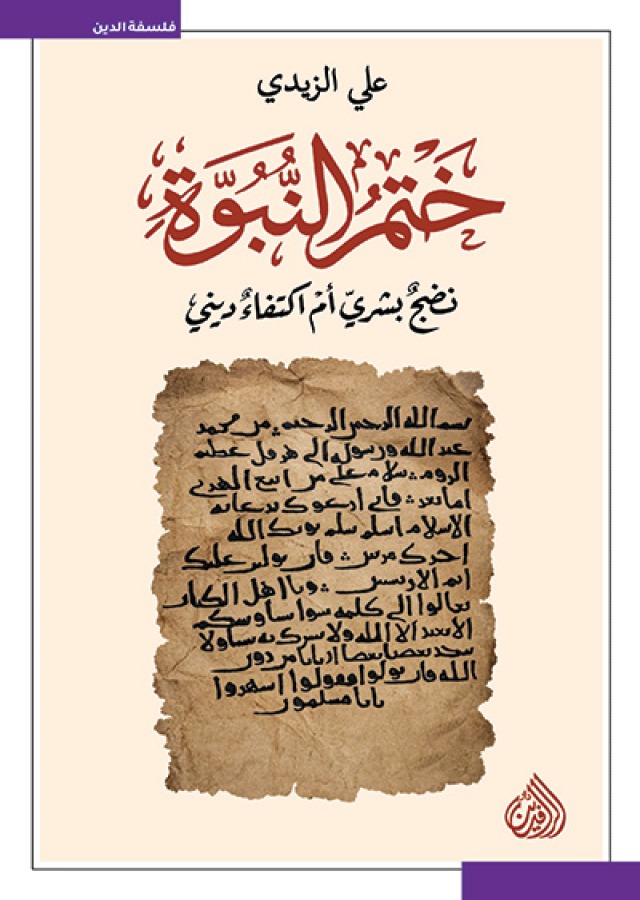 فلسفة الدين
علي الزيدي
ختمُ النُّبُوَّةِ
نضجٌ بشريّ أمْ اكتفاءٌ ديني
بسم الله الرحمن الرحيم من محمد
عبد الله ورسوله الى هرقل عظيم
الروم سلام على من اتبع الهدى
اما بعد فاني ادعوك بدعاية
الاسلام اسلم تسلم يوتك الله
اجرك مرتين فان توليت فعليك
اثم الاريسيين ويا اهل الكتاب
تعالوا الى كلمة سوا بيننا وبينكم
الا نعبد الا الله ولا نشرك به شيا ولا
يتخذ بعضنا بعضا اربابا من دون
الله فان تولوا فقولوا اشهدوا
بانا مسلمون
دار الرافدين